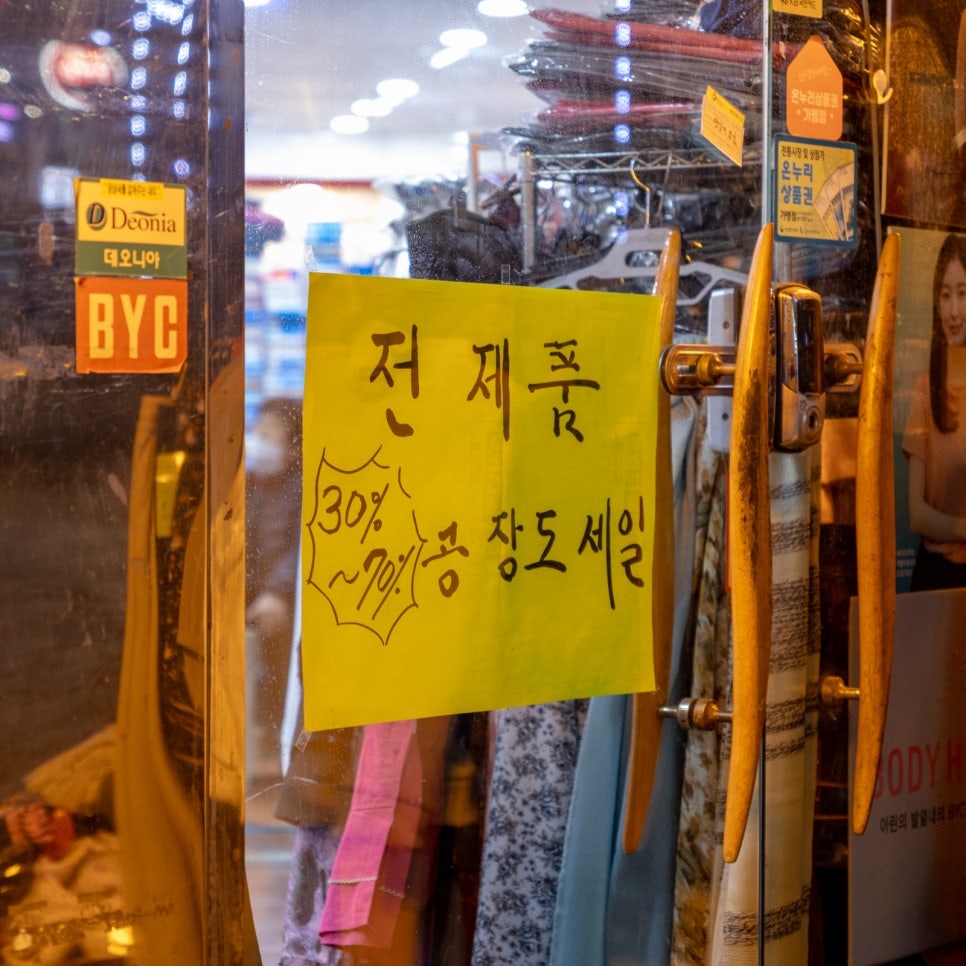 Deonia
데오니아
BYC
전 제 품
30%
~70%
공 장 도 세 일
온누리상품권
가맹점
전통시장 및 상점가
온누리
상품권
가맹점
BODY H
아린의 발열내의 BYC